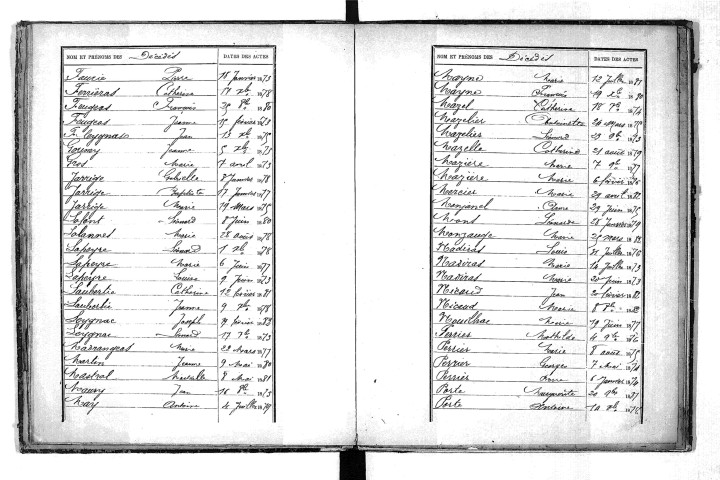 NOM ET PRÉNOMS DES Décédés DATES DES ACTES
Faurie Pierre 18 Janvier 1873
Ferrièras Catherine 17 Xbre 1878
Feugeas François 25 8bre 1880
Feugeas Jeanne 15 février 1873
Jean 13 Xbre 1875
Jeanne 5 Xbre 1873
Marie 7 avril 1873
Jarrige Gabrielle 8 Janvier 1878
Jarrige Baptiste 17 Janvier 1877
Jarrige Marie 19 Mars 1875
Lafont Léonard 8 Juin 1880
Marie 28 août 1878
Lapeyre Léonard 1 Xbre 1878
Lapeyre Marie 6 Juin 1877
Lapeyre Louise 9 1873
Laubertie Catherine 12 février 1881
Laubertie Jeanne 9 Xbre 1878
Leygnac Joseph 19 février 1882
Leygnac Léonard 17 7bre 1873
Madrangeas Marie 23 Mars 1877
Martin Jeanne 9 Mai 1880
Mastral 8 Mai 1881
Maury Jean 16 8bre 1873
May Antoine 4 Juillet 1879
NOM ET PRÉNOMS DES Décédés DATES DES ACTES
Mayne Marie 12 Juillet 1881
Mayne François 19 Xbre 1880
Mazel Catherine 18 7bre 1874
Mazelier Antoinette 24 Mars 1875
Mazelier Léonard 23 9bre 1873
Mazelle Catherine 21 août 1879
Mazière Marie 7 9bre 1877
Mazière Marie 6 février 1876
Mercier Marie 21 avril 1882
Meyjanel 29 Juin 1875
Mons Léonarde 28 Janvier 1879
Monzauge Marie 25 Mars 1882
Nadiras Louis 21 Juillet 1876
Nadiras Marie 14 Juillet 1873
Nadiras Marie 20 Juin 1873
Nicaud Jean 20 février 1882
Nicaud Marie 8 8bre 1882
Nouilhac Marie 19 Juin 1877
Perrier Mathilde 4 9bre 1876
Perrier Marie 8 août 1875
Perrier Georges 7 Mai 1874
Perrier 6 Janvier 1874
Porte Marguerite 20 9bre 1877
Porte Antoine 14 1876